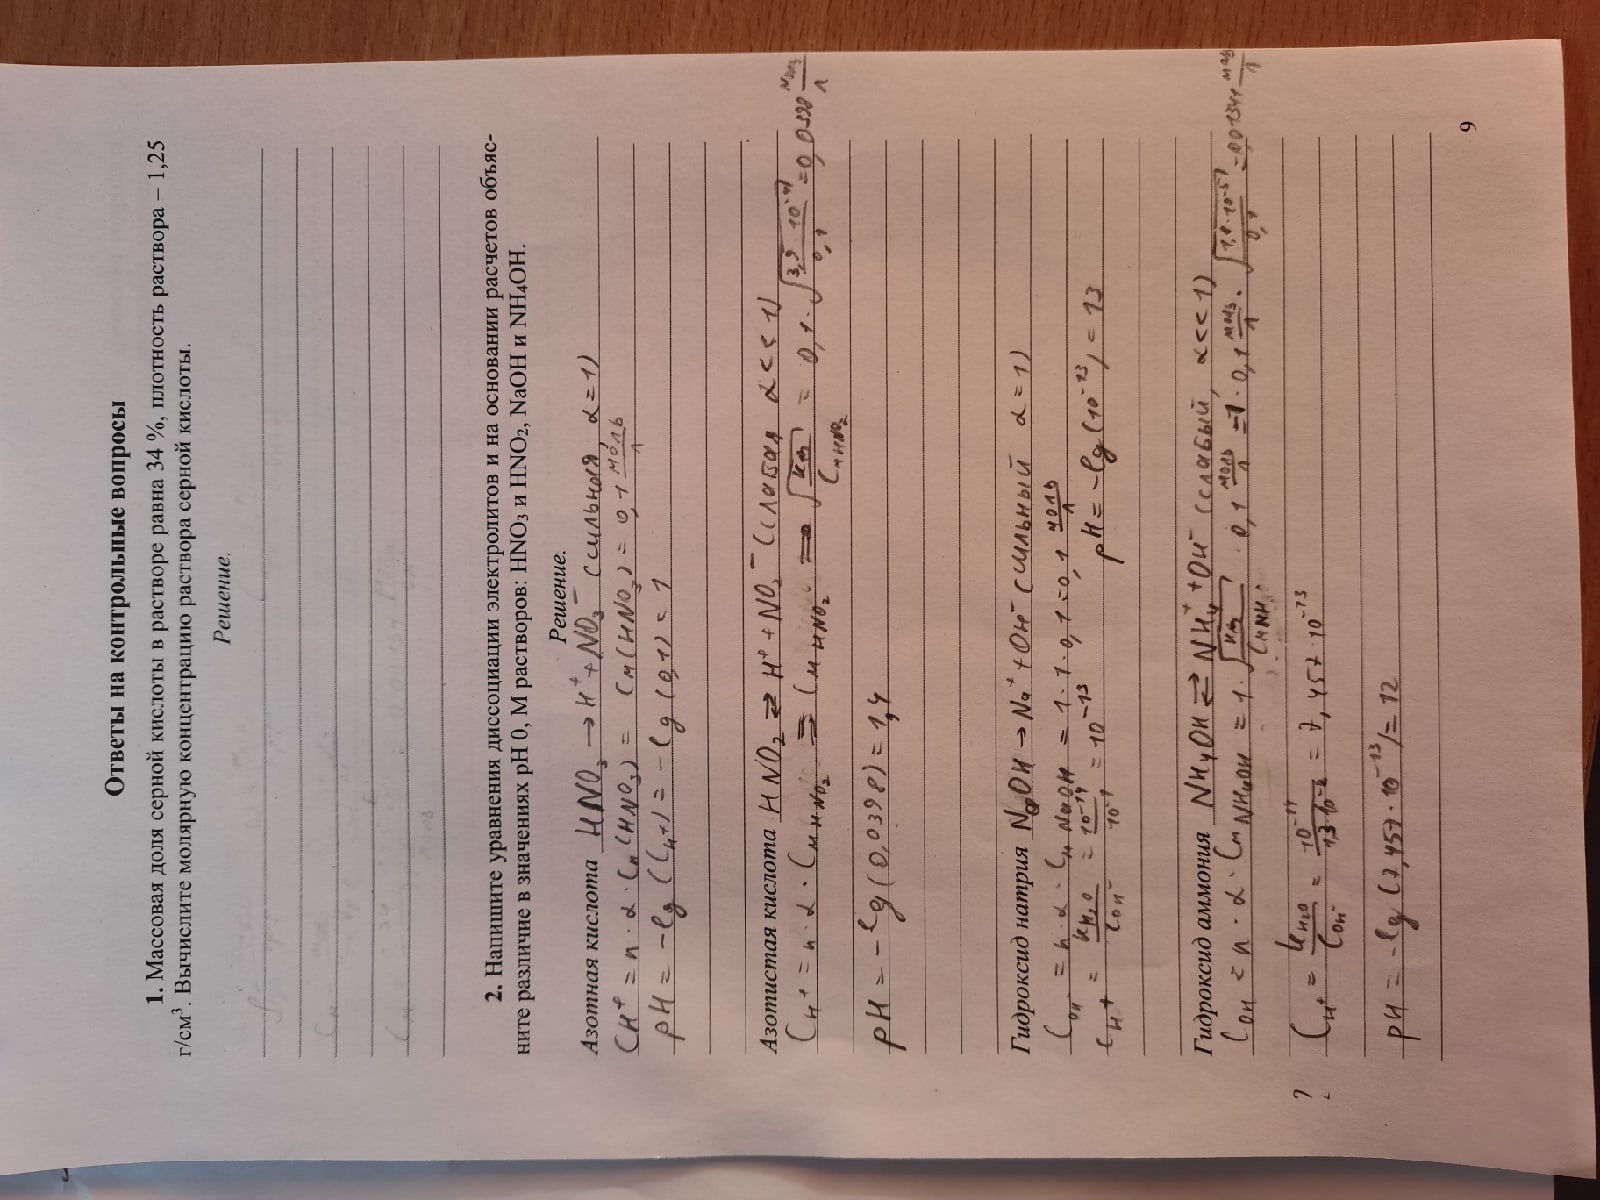 Ответы на контрольные вопросы
1. Массовая доля серной кислоты в растворе равна 34 %, плотность раствора – 1,25
г/см³. Вычислите молярную концентрацию раствора серной кислоты.
Решение.
2. Напишите уравнения диссоциации электролитов и на основании расчетов объяс-
ните различие в значениях pH 0, М растворов: HNO₃ и HNO₂, NaOH и NH₄OH.
Решение.
Азотная кислота HNO₃ → H⁺ + NO₃⁻ (сильная, α = 1)
CH⁺ = n · α · Cм (HNO₃) = Cм (HNO₃) = 0,1 моль/л
pH = -lg (CH⁺) = -lg (0,1) = 1
Азотистая кислота HNO₂ ⇄ H⁺ + NO₂⁻ (слабая, α << 1)
CH⁺ = n · α · Cм HNO₂ = Cм HNO₂ = √(Kд/Cм HNO₂) = 0,1 · √( · 10⁻⁴/0,1) = 0,0398
pH = -lg (0,0398) = 1,4
Гидроксид натрия NaOH → Na⁺ + OH⁻ (сильный α = 1)
COH⁻ = n · α · Cм NaOH = 1 · 1 · 0,1 = 0,1 моль/л
CH⁺ = KH₂O/COH⁻ = 10⁻¹⁴/10⁻¹ = 10⁻¹³ pH = -lg (10⁻¹³) = 13
Гидроксид аммония NH₄OH ⇄ NH₄⁺ + OH⁻ (слабый, α << 1)
COH = n · α · Cм NH₄OH = 1 · √(Kд/) · 0,1 моль/л = 1 · 0,1 · √(/0,1) =
? CH⁺ = KH₂O/COH⁻ = 10⁻¹⁴/ = 7,457 · 10⁻¹³
pH = -lg (7,457 · 10⁻¹³) = 12
9